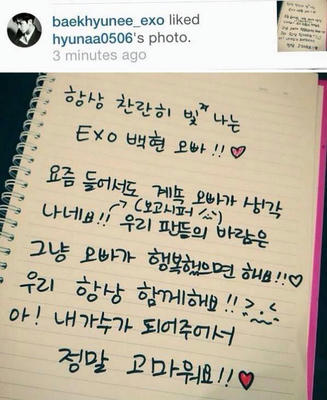 baekhyunee_exo liked
hyunaa0506's photo.
3 minutes ago
항상 찬란히 빛나는
EXO 백현 오빠!!
요즘 들어서도 계속 오빠가 생각
나네요!! (보고시퍼 ^^) 우리 팬들의 바람은
그냥 오빠가 행복했으면 해요!!
우리 항상 함께해요!!
아! 내가수가 되어주어서
정말 고마워요!!